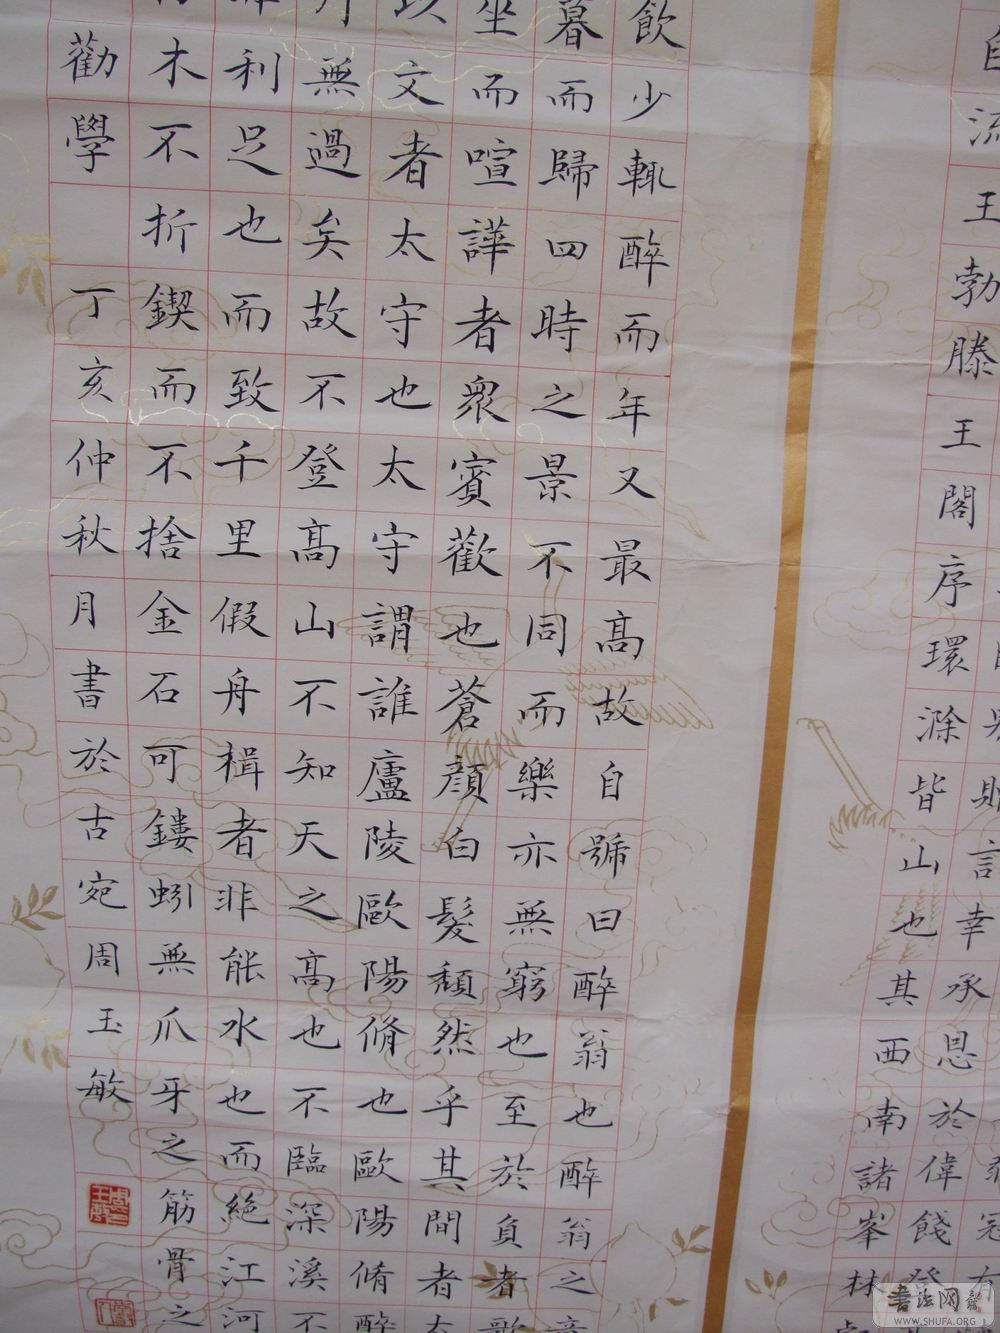 言幸承恩於偉餞登
自流王勃滕王閣序環滁皆山也其西南諸峯林
飲少輒醉而年又最高故自號曰醉翁也醉翁之意
暮而歸四時之景不同而樂亦無窮也至於負者歌
坐而喧譁者眾賓歡也蒼顏白髮頹然乎其間者太
以文者太守也太守謂誰廬陵歐陽脩也歐陽脩醉
無過矣故不登高山不知天之高也不臨深溪不
利足也而致千里假舟楫者非能水也而絕江河
木不折鍥而不捨金石可鏤蚓無爪牙之筋骨之
勸學 丁亥仲秋月書於古宛周玉敏
书法网
WWW.SHUFA.ORG